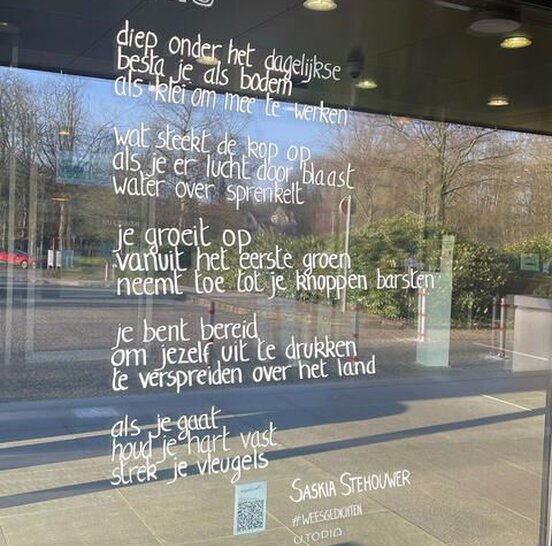 diep onder het dagelijkse
besta je als bodem
als klei om mee te werken
wat steekt de kop op
als je er lucht door blaast
water over sprenkelt
je groeit op
vanuit het eerste groen
neemt toe tot je knoppen barsten
je bent bereid
om jezelf uit te drukken
te verspreiden over het land
als je gaat
houd je hart vast
strek je vleugels
SASKIA STEHOUWER
#WEESGEDICHTEN
UTOPIA